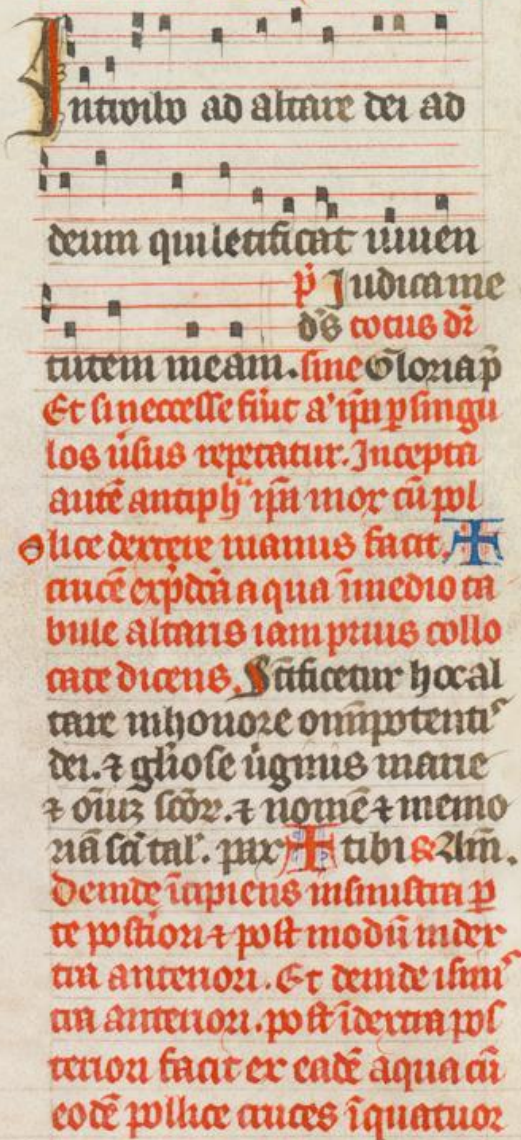 Introibo ad altare dei ad
deum qui letificat iuuen
p̄ Iudica me
d̄s totus d̄r
tutem meam. sine Gloria p̄
Et si neccesse fu̇it a' ip̄a p̱ singu
los ūsus repetatur. Incepta
autē antiph̄ ip̄a mox cū pol
lice dextere manus facit ✠
crucē exp̄dc̄a aqua ī medio ta
bule altaris iam prius collo
cate dicens. Sc̄ificetur hoc al
tare in honore om̄ipotentis
dei. ⁊ gl̄iose ūginis marie
⁊ om̄iuꝫ sc̄oꝝ. ⁊ nomē ⁊ memo
riā sc̄i tal'. pax ✠ tibi ꝶ Am̄.
Deinde īcipiens in sinistra ꝑ
te post̄iori ⁊ post modū in dex
tra anteriori. Et deinde ī sinis
tra anteriori. post ī dextra pos
teriori facit ex eadē aqua cū
eodē pollice cruces ī quatuor